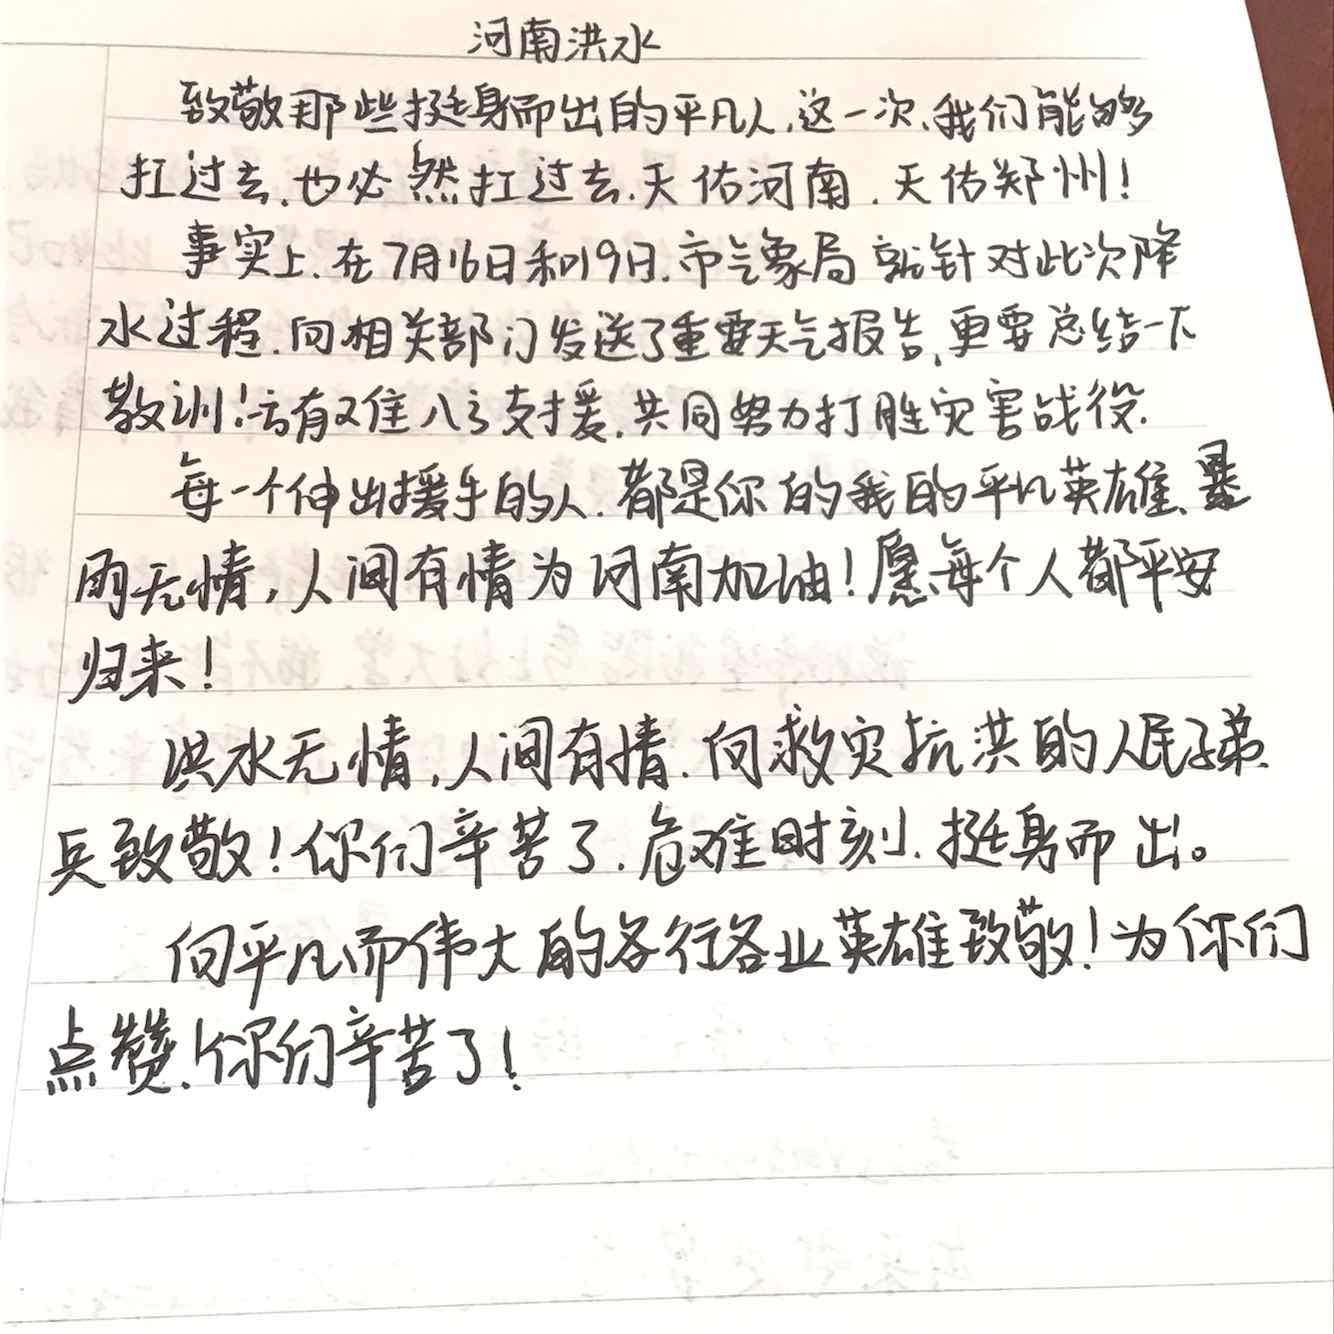 河南洪水
致敬那些挺身而出的平凡人,这一次,我们能够
扛过去,也必然扛过去,天佑河南,天佑郑州!
事实上,在7月16日和19日,市气象局就针对此次降
水过程,向相关部门发送了重要天气报告,更要总结一下
教训!一方有难八方支援,共同努力打胜灾害战役.
每一个伸出援手的人,都是你的我的平凡英雄,暴
雨无情,人间有情为河南加油!愿每个人都平安
归来!
洪水无情,人间有情,向救灾抗洪的人民子弟
兵致敬!你们辛苦了,危难时刻,挺身而出。
向平凡而伟大的各行各业英雄致敬!为你们
点赞!你们辛苦了!